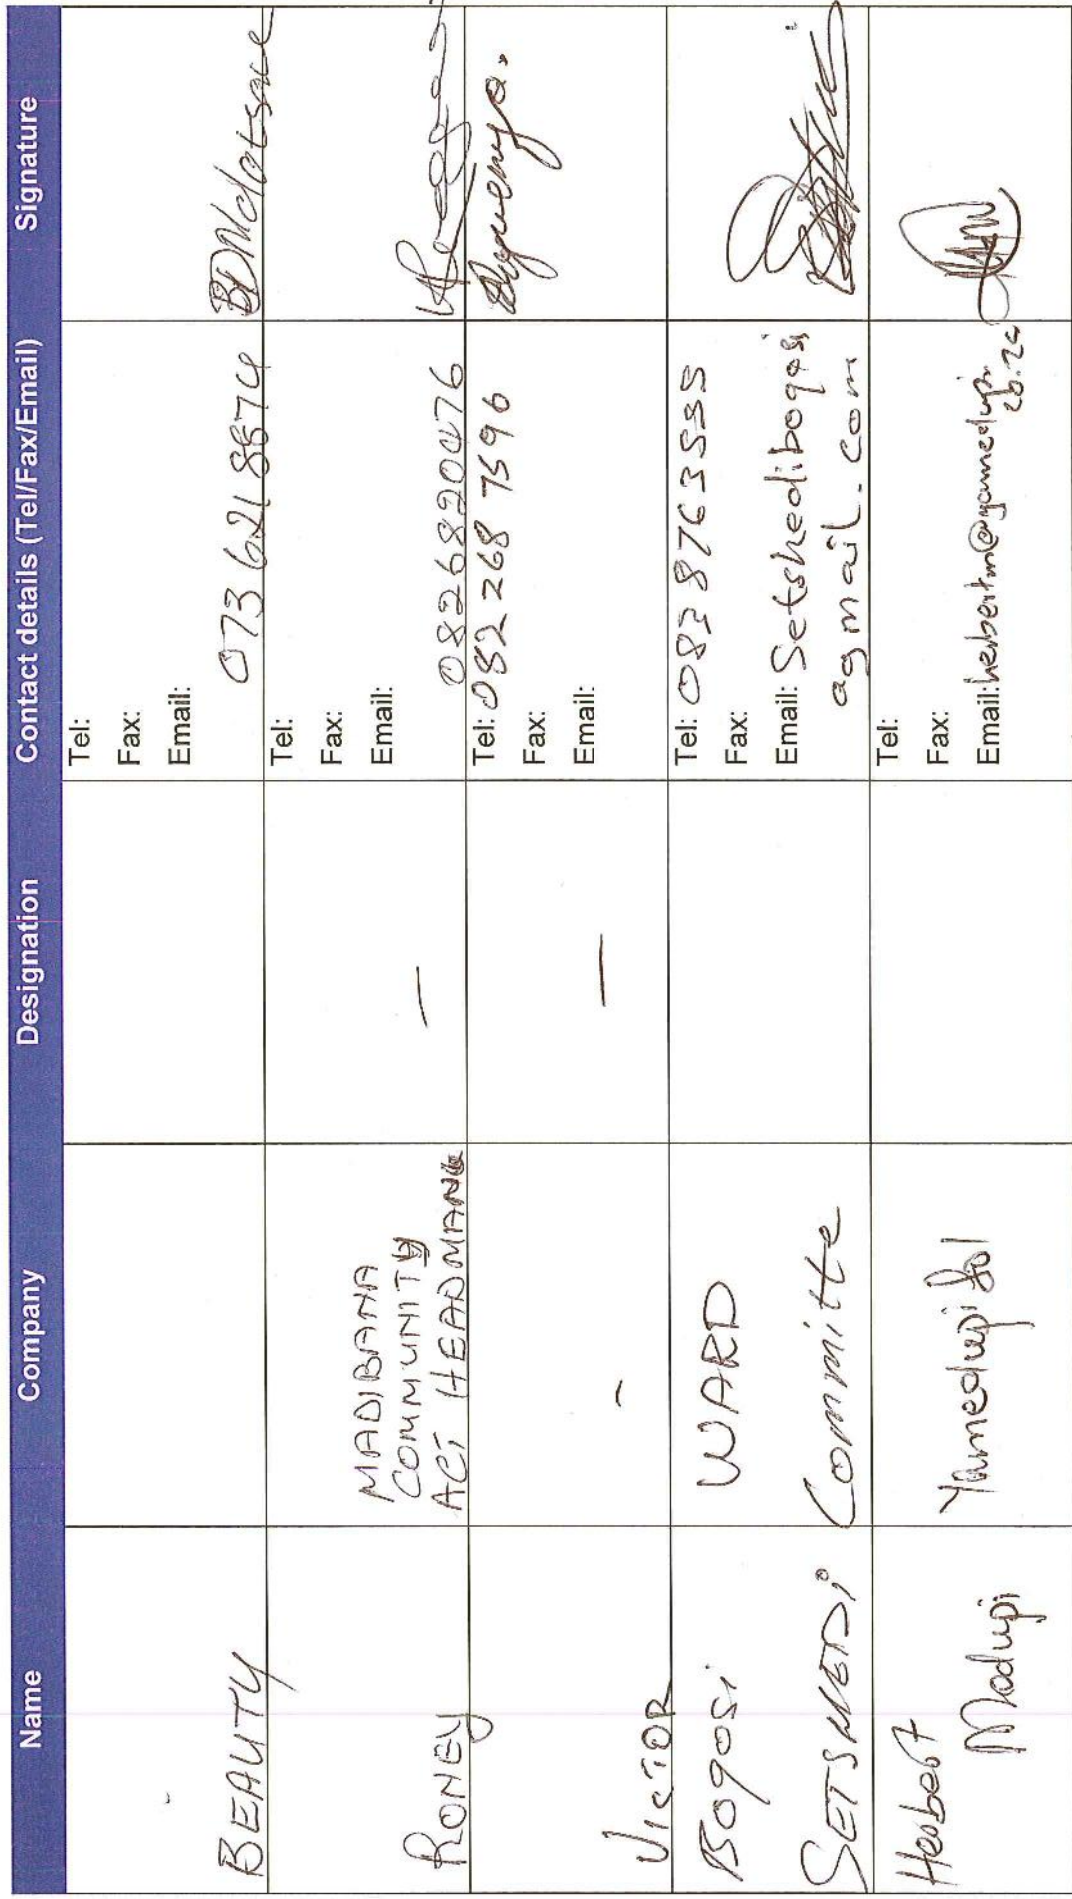 Name Company Designation Contact details (Tel/Fax/Email) Signature
BEAUTY
Tel:
Fax:
Email:
073 621 8874
RONEY
MADIBANA
COMMUNITY
ACT HEADMAN
—
Tel:
Fax:
Email:
0826820476
VICTOR
-
—
Tel: 082 268 7596
Fax:
Email:
Bogosi
SETSHEDi
WARD
Committe
Tel: 083 8763535
Fax:
Email: Setshedibogosi
agmail.com
Herbert
Madupi
Tel:
Fax:
Email: